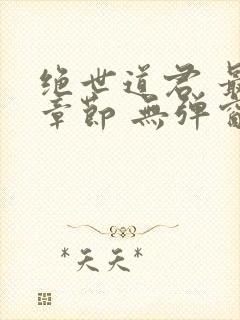 绝世道君 最
章節 無弹窗
*天天*